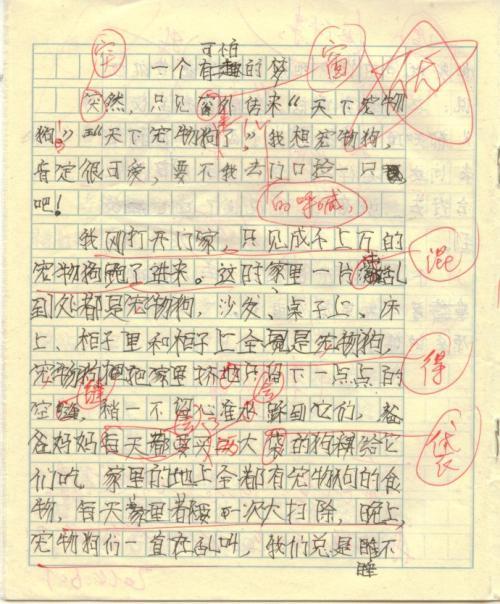 突 可怕 窗 优
一个有趣的梦
突然，只见窗外传来“天下宠物
狗！”“天下宠物狗了”，我想宠物狗，
肯定很可爱，要不我去门口捡一只
吧！ 的呼喊，
我刚打开门家，只见成千上万的
宠物狗跑了进来。这时家里一片混乱 混
到处都是宠物狗，沙发、桌子上、床
上、柜子里和柜子上全是宠物狗，
宠物狗把家里挤地只留下一点点的 得
空隧，稍一不留心准踩到它们，爸 缝 会
爸妈妈每天都要买两大袋的狗粮给它 袋
们吃。家里的地上全都有宠物狗的食
物，每天家里都要来一次大扫除，晚上，
宠物狗们一直在乱叫，我们总是睡不
睡